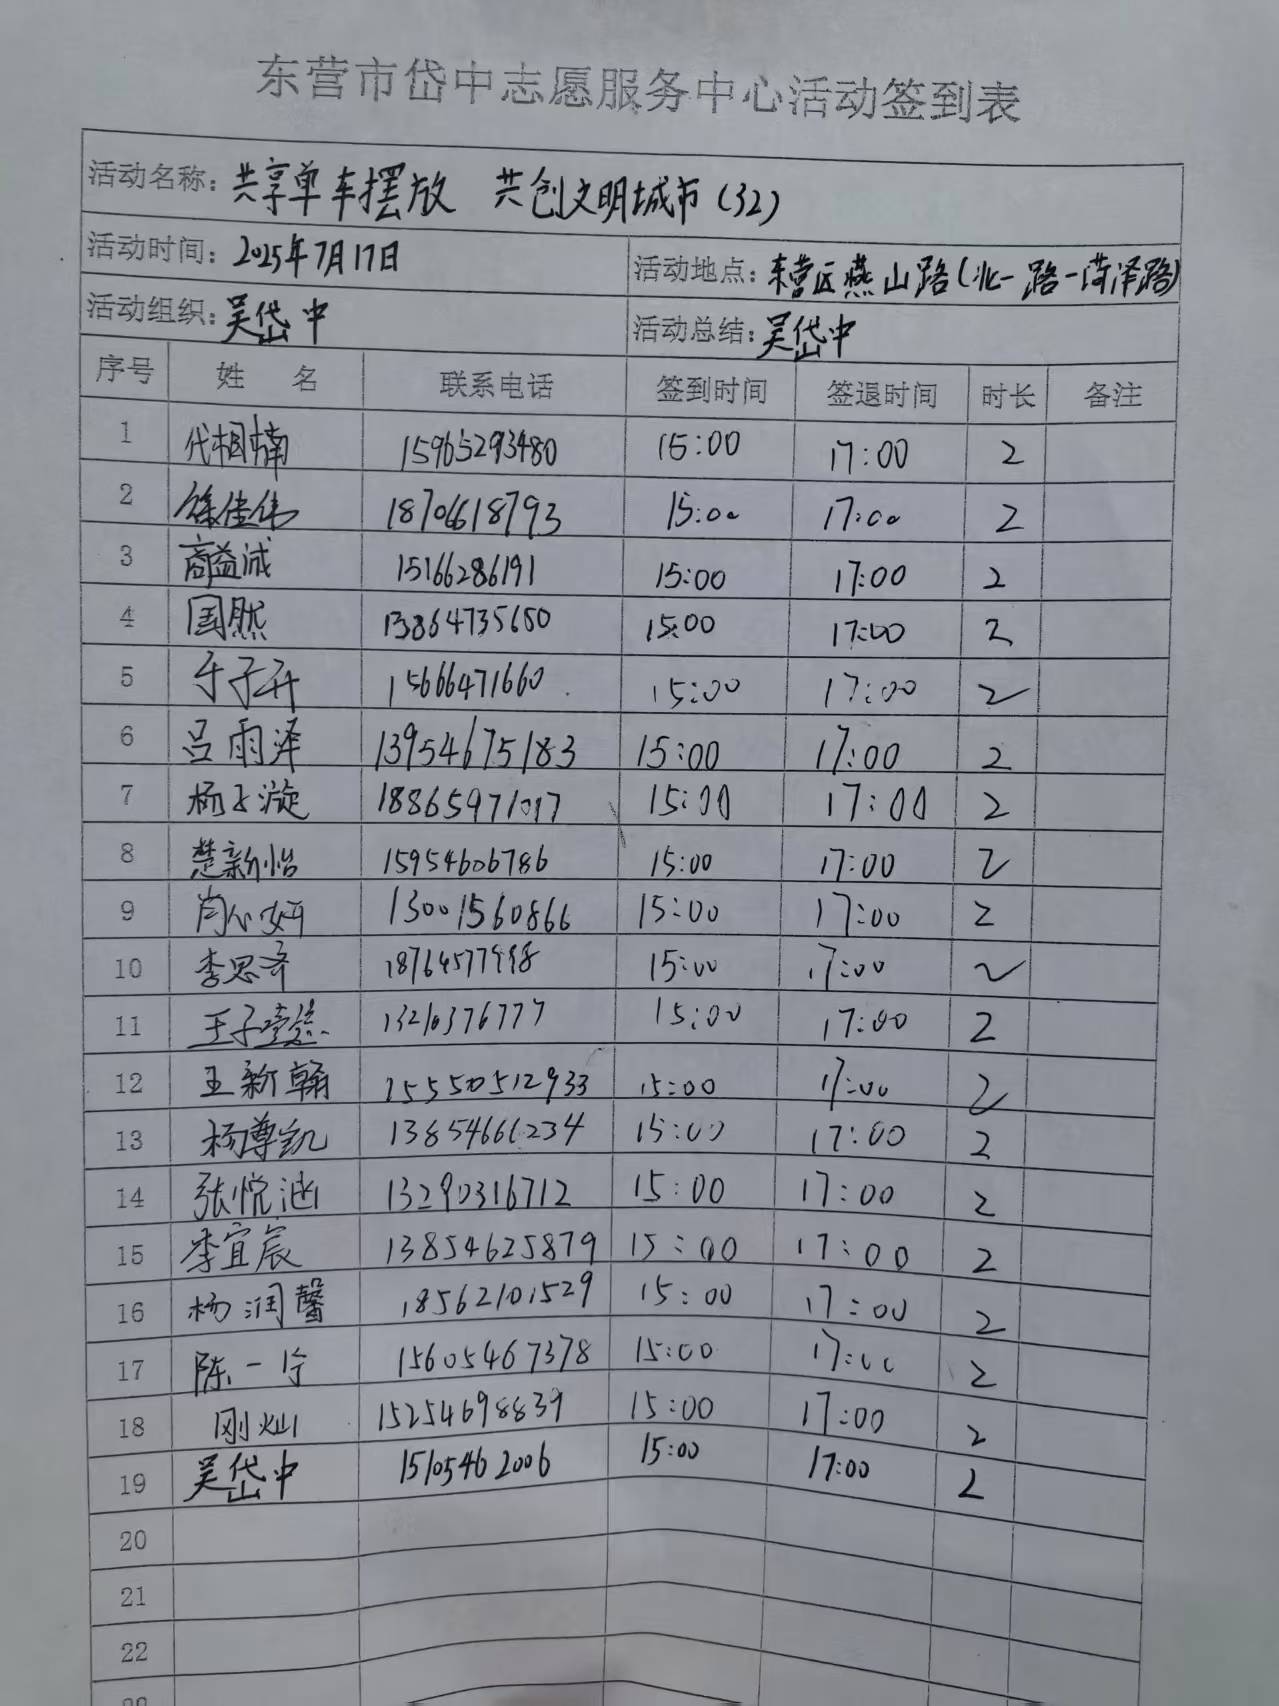 东营市岱中志愿服务中心活动签到表
活动名称：共享单车摆放 共创文明城市（32）
活动时间：2025年7月17日 活动地点：东营区燕山路（北一路-菏泽路）
活动组织：吴岱中 活动总结：吴岱中
序号 姓 名 联系电话 签到时间 签退时间 时长 备注
1 代相楠 15965293480 15:00 17:00 2
2 徐佳伟 18706618793 15:00 17:00 2
3 商益诚 15166286191 15:00 17:00 2
4 国然 13864735650 15:00 17:00 2
5 于子开 15666471660 15:00 17:00 2
6 吕雨泽 13954675183 15:00 17:00 2
7 杨子漩 18865971017 15:00 17:00 2
8 楚新怡 15954606786 15:00 17:00 2
9 肖心妍 13001560866 15:00 17:00 2
10 李思齐 15:00 17:00 2
11 王子 13210376777 15:00 17:00 2
12 王新翰 15550512933 15:00 17:00 2
13 杨尊凯 13854666234 15:00 17:00 2
14 张悦涵 13290316712 15:00 17:00 2
15 李宜宸 13854625879 15:00 17:00 2
16 杨润馨 18562101529 15:00 17:00 2
17 陈一 15605467378 15:00 17:00 2
18 刚灿 15254698839 15:00 17:00 2
19 吴岱中 15105462006 15:00 17:00 2
20
21
22